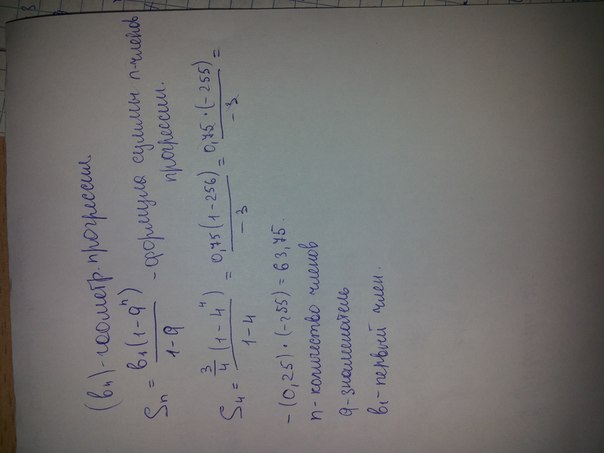 (bн)-геометр. прогрессия.
Sn = b1(1-q^n) / 1-q - формула суммы n-членов прогрессии.
S4 = 3/4 (1-4^4) / 1-4 = 0,75(1-256) / -3 = 0,75·(-255) / -3 =
-(0,25)·(-255)=63,75.
n- количество членов
q-знаменатель
b1-первый член.